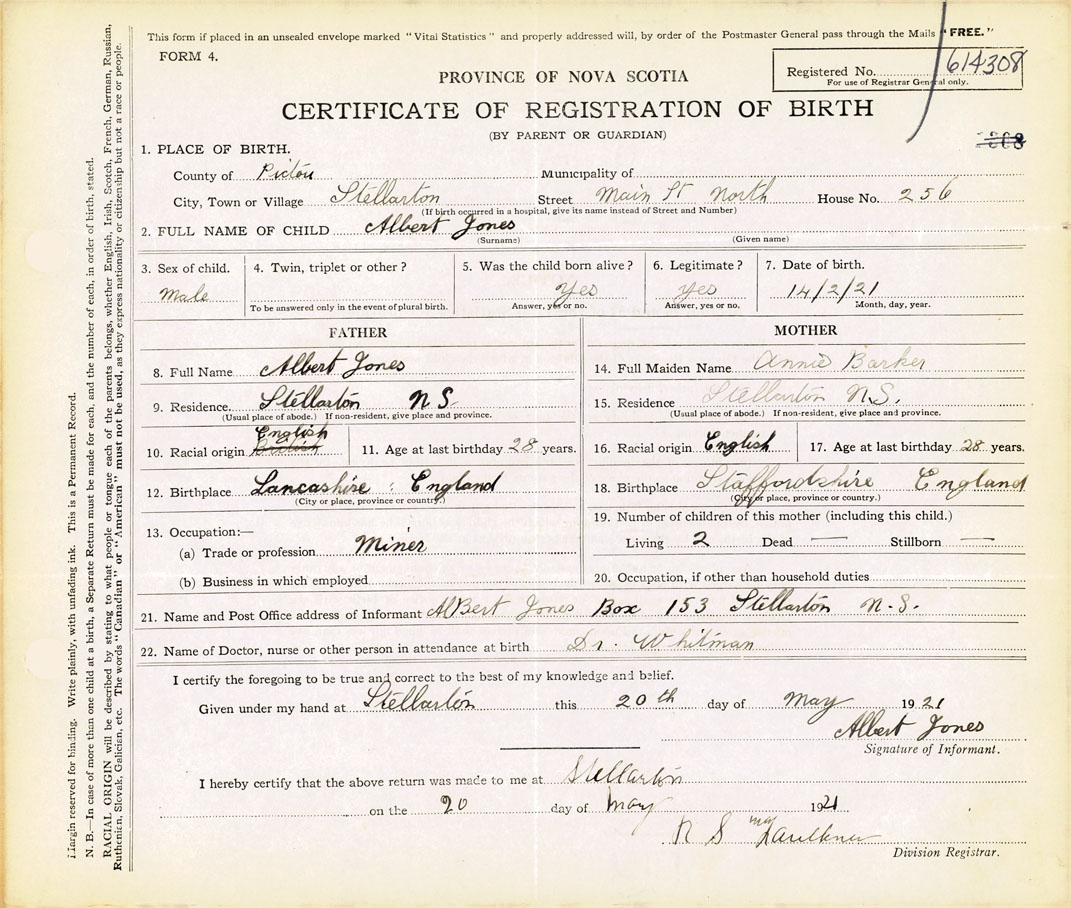 This form if placed in an unsealed envelope marked "Vital Statistics" and properly addressed will, by order of the Postmaster General pass through the Mails "FREE."
FORM 4.
PROVINCE OF NOVA SCOTIA
Registered No. 614308
For use of Registrar General only.
CERTIFICATE OF REGISTRATION OF BIRTH
(BY PARENT OR GUARDIAN)
1. PLACE OF BIRTH.
County of Pictou Municipality of
City, Town or Village Stellarton Street Main St North House No. 256
(If birth occurred in a hospital, give its name instead of Street and Number)
2. FULL NAME OF CHILD Albert Jones
(Surname) (Given name)
3. Sex of child. 4. Twin, triplet or other? 5. Was the child born alive? 6. Legitimate? 7. Date of birth.
Male Yes yes 14/2/21
To be answered only in the event of plural birth. Answer, yes or no. Answer, yes or no. Month, day, year.
FATHER
8. Full Name Albert Jones
9. Residence Stellarton N S.
(Usual place of abode.) If non-resident, give place and province.
English
10. Racial origin British 11. Age at last birthday 28 years.
12. Birthplace Lancashire : England
(City or place, province or country.)
13. Occupation:—
(a) Trade or profession Miner
(b) Business in which employed
MOTHER
14. Full Maiden Name Annie Barker
15. Residence Stellarton N.S.
(Usual place of abode.) If non-resident, give place and province.
16. Racial origin English 17. Age at last birthday 28 years.
18. Birthplace Staffordshire England
(City or place, province or country.)
19. Number of children of this mother (including this child.)
Living 2 Dead — Stillborn —
20. Occupation, if other than household duties
21. Name and Post Office address of Informant AlBert Jones Box 153 Stellarton N.S.
22. Name of Doctor, nurse or other person in attendance at birth Dr. Whitman
I certify the foregoing to be true and correct to the best of my knowledge and belief.
Given under my hand at Stellarton this 20th day of May 1921
Albert Jones
Signature of Informant.
I hereby certify that the above return was made to me at Stellarton
on the 20 day of May 1921
R S Faulkner
Division Registrar.
Margin reserved for binding. Write plainly, with unfading ink. This is a Permanent Record.
N. B.—In case of more than one child at a birth, a Separate Return must be made for each, and the number of each, in order of birth, stated.
RACIAL ORIGIN will be described by stating to what people or tongue each of the parents belongs, whether English, Irish, Scotch, French, German, Russian,
Ruthenian, Slovak, Galician, etc. The words "Canadian" or "American" must not be used, as they express nationality or citizenship but not a race or people.